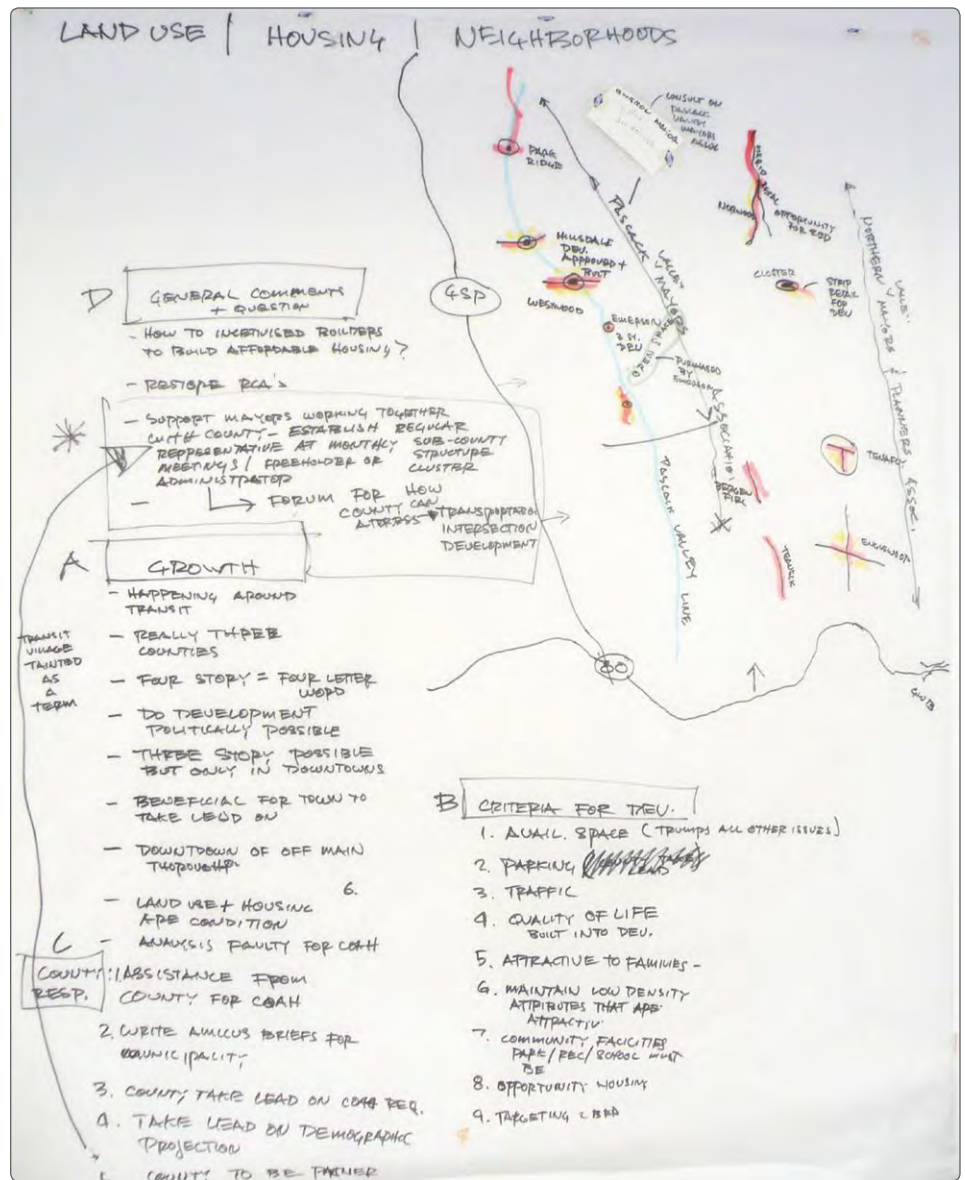 LAND USE | HOUSING | NEIGHBORHOODS
D
GENERAL COMMENTS
+ QUESTION
- HOW TO INCETIVISED BUILDERS
TO BUILD AFFORDABLE HOUSING?
- RESTORE RCA'S
- SUPPORT MAYORS WORKING TOGETHER
WITH COUNTY - ESTABLISH REGULAR
REPRESENTATIVE AT MONTHLY SUB-COUNTY
MEETINGS / FREEHOLDER OR STRUCTURE
ADMINISTRATOR CLUSTER
-
FORUM FOR HOW
COUNTY CAN
ADDRESS TRANSPORTATION
INTERSECTION
DEVELOPMENT
A
GROWTH
- HAPPENING AROUND
TRANSIT
- REALLY THREE
COUNTIES
- FOUR STORY = FOUR LETTER
WORD
- DO DEVELOPMENT
POLITICALLY POSSIBLE
- THREE STORY POSSIBLE
BUT ONLY IN DOWNTOWNS
- BENEFICIAL FOR TOWN TO
TAKE LEAD ON
- DOWNTOWN OF OFF MAIN
THOROUGHF.
6.
- LAND USE + HOUSING
ARE CONDITION
- ANALYSIS FAULTY FOR COAH
TRANSIT
VILLAGE
TAINTED
AS
A
TERM
C
COUNTY
RESP.
1. ASSISTANCE FROM
COUNTY FOR COAH
2. WRITE AMICUS BRIEFS FOR
MUNICIPALITY
3. COUNTY TAKE LEAD ON COAH REQ.
4. TAKE LEAD ON DEMOGRAPHIC
PROJECTION
COUNTY TO BE PARTNER
B
CRITERIA FOR DEV.
1. AVAIL. SPACE (TRUMPS ALL OTHER ISSUES)
2. PARKING
3. TRAFFIC
4. QUALITY OF LIFE
BUILT INTO DEV.
5. ATTRACTIVE TO FAMILIES -
6. MAINTAIN LOW DENSITY
ATTRIBUTES THAT ARE
ATTRACTIV
7. COMMUNITY FACILITIES
PARK / REC / SCHOOL MUST
BE
8. OPPORTUNITY HOUSING
9. TARGETING
GSP
80
GWB
PARK
RIDGE
HILLSDALE
DEV.
APPROVED +
BUILT
WESTWOOD
EMERSON
3 ST.
DEV
OPEN SPACE
PURCHASED
BY
EMERSON
PASCACK VALLEY MAYORS ASSOCIATION
PASCACK VALLEY LINE
CONSULT ON
PASCACK
VALLEY
MAYORS
NORWOOD
OPPORTUNITY
FOR
CLOSTER
STRIP
RETAIL
FOR
DEV
NORTHERN VALLEY MAYORS & PLANNERS ASSOC.
TENAFLY
BERGEN
TEANECK
ENGLEWOOD